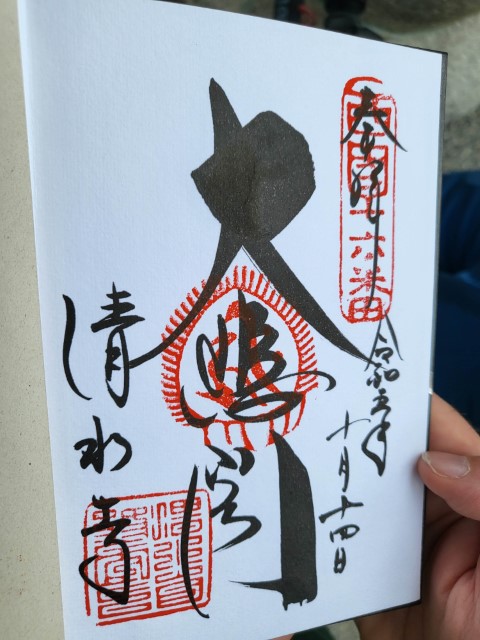 奉拝
西國十六番
令和五年
十月十四日
大悲閣
清水寺